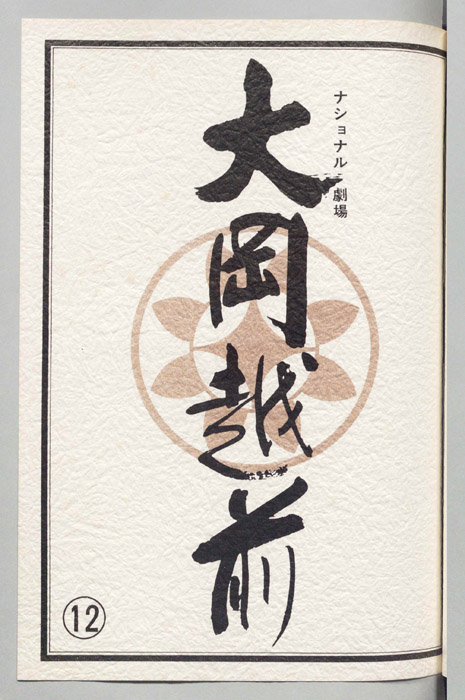 ナショナル劇場
大岡越前
⑫